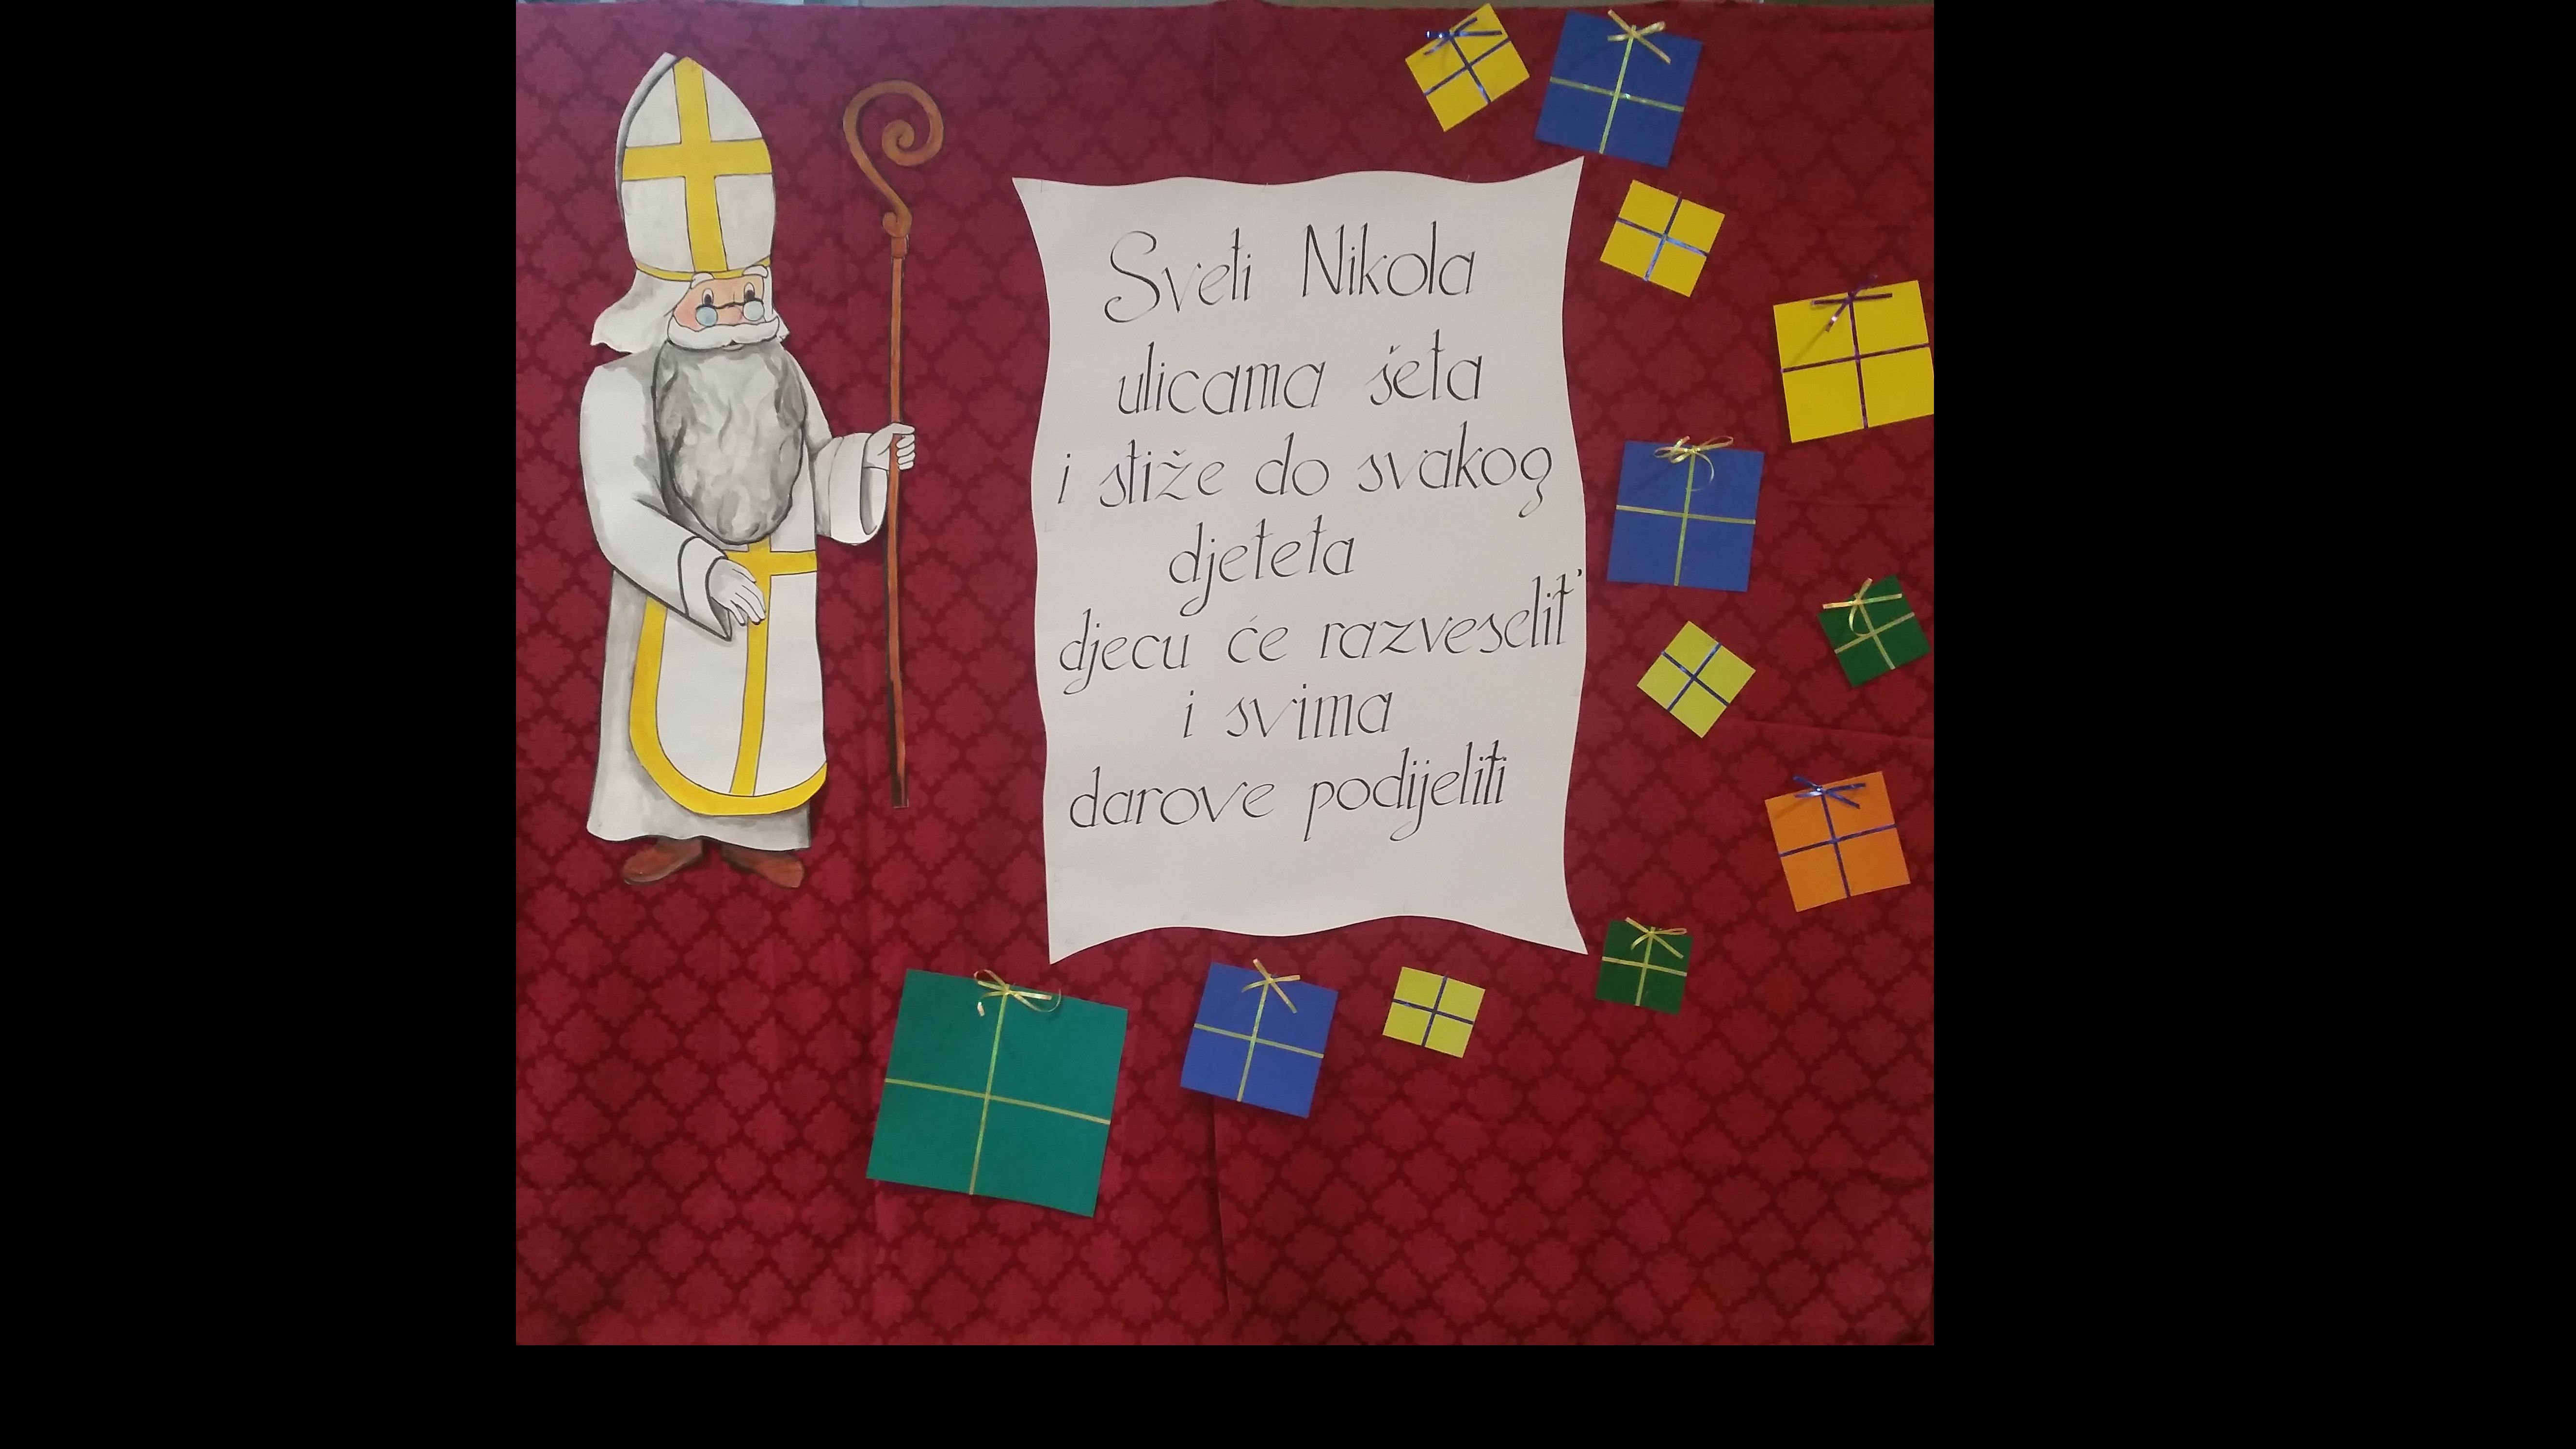 Sveti Nikola
ulicama šeta
i stiže do svakog
djeteta
djecu će razveselit'
i svima
darove podijeliti